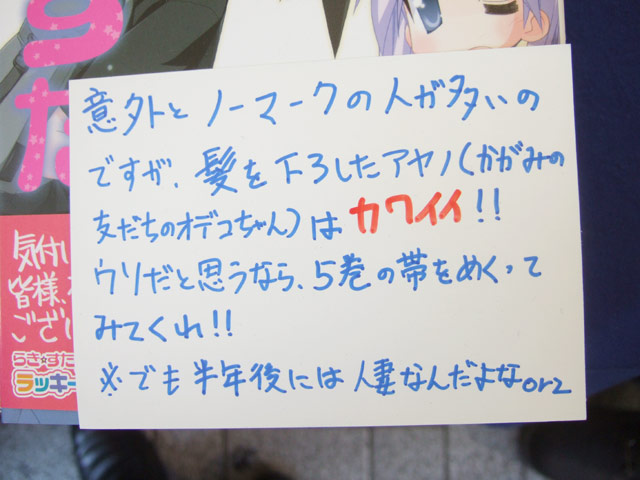 らき☆すた
意外とノーマークの人が多いの
ですが、髪を下ろしたアヤノ(かがみの
友だちのオデコちゃん)はカワイイ!!
ウソだと思うなら、5巻の帯をめくって
みてくれ!!
※でも半年後には人妻なんだよなorz
気付い
皆様、
ござい
らき☆すた
ラッキー